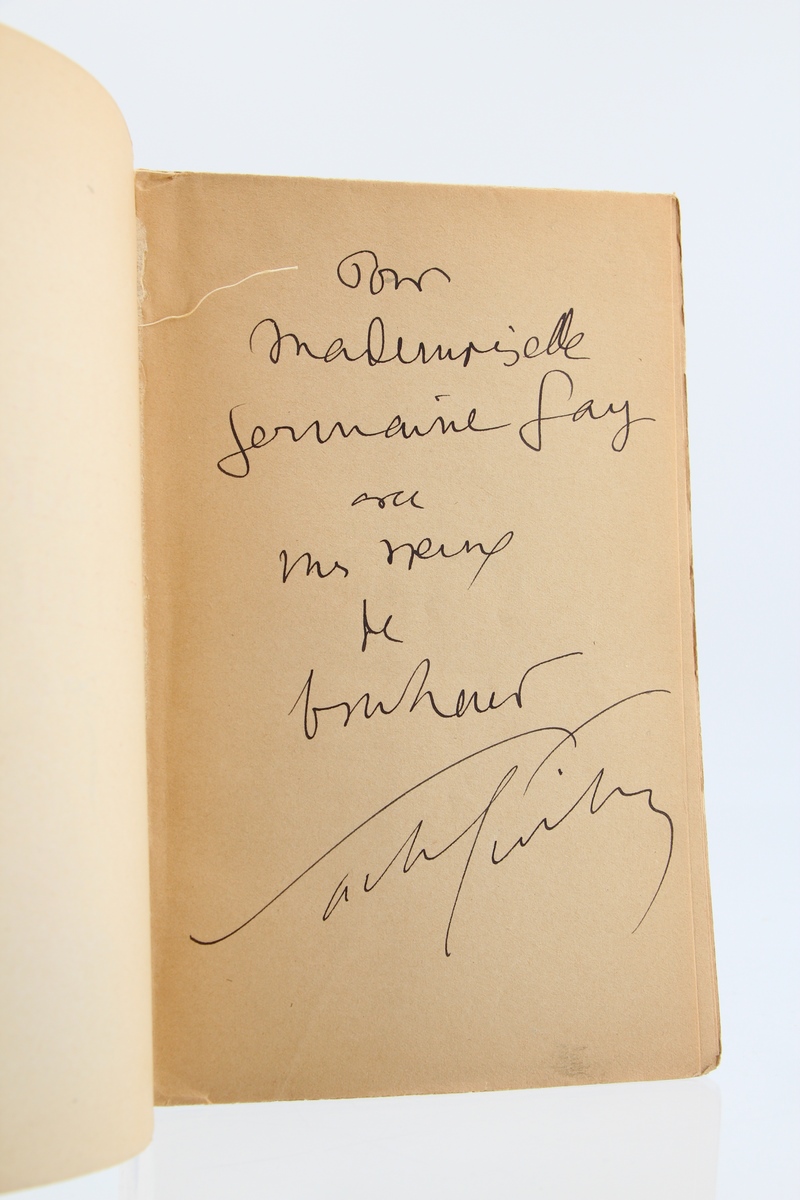 Pour
Mademoiselle
Germaine Gay
avec
mes vœux
de
bonheur
Sacha Guitry